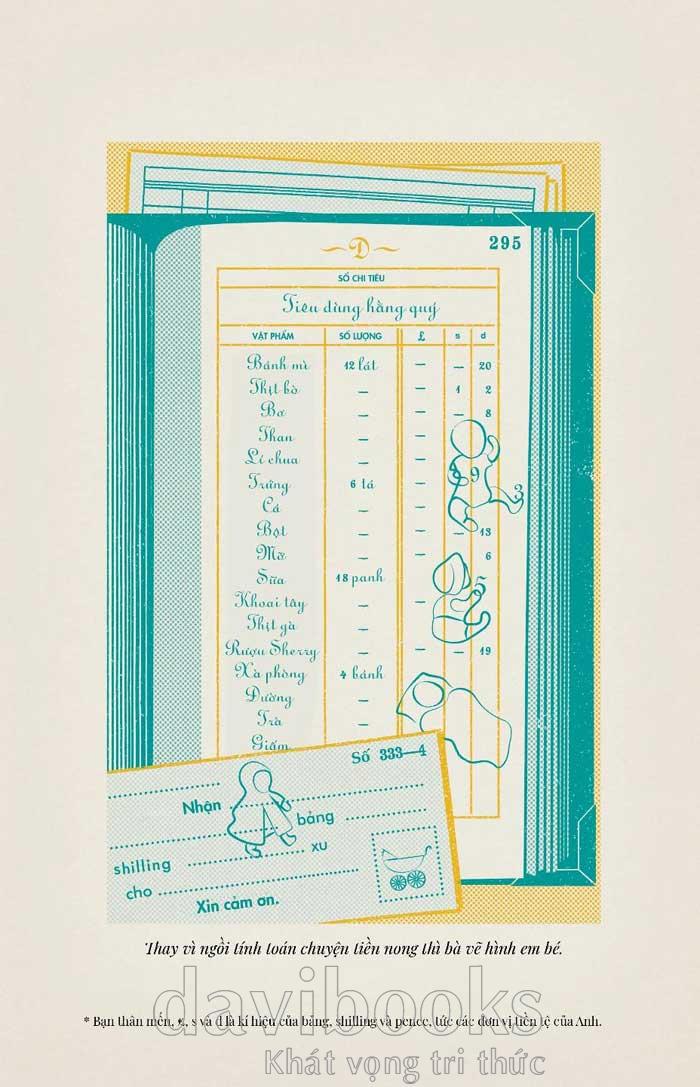 295
D
SỔ CHI TIÊU
Tiêu dùng hằng quý
VẬT PHẨM SỐ LƯỢNG £ s d
Bánh mì 12 lát — — 20
Thịt bò — — 1 2
Bơ — — — 8
Than — —
Lí chua — —
Trứng 6 tá — 9
Cá — — 3
Bột — — — 13
Mỡ — — 6
Sữa 18 panh 5
Khoai tây — — —
Thịt gà —
Rượu Sherry — — — 19
Xà phòng 4 bánh
Đường —
Trà —
Giấm
Số 333—4
Nhận bảng
shilling xu
cho
Xin cảm ơn.
Thay vì ngồi tính toán chuyện tiền nong thì bà vẽ hình em bé.
davibooks
* Bạn thân mến, £, s và d là kí hiệu của bảng, shilling và pence, tức các đơn vị tiền tệ của Anh.
Khát vọng tri thức